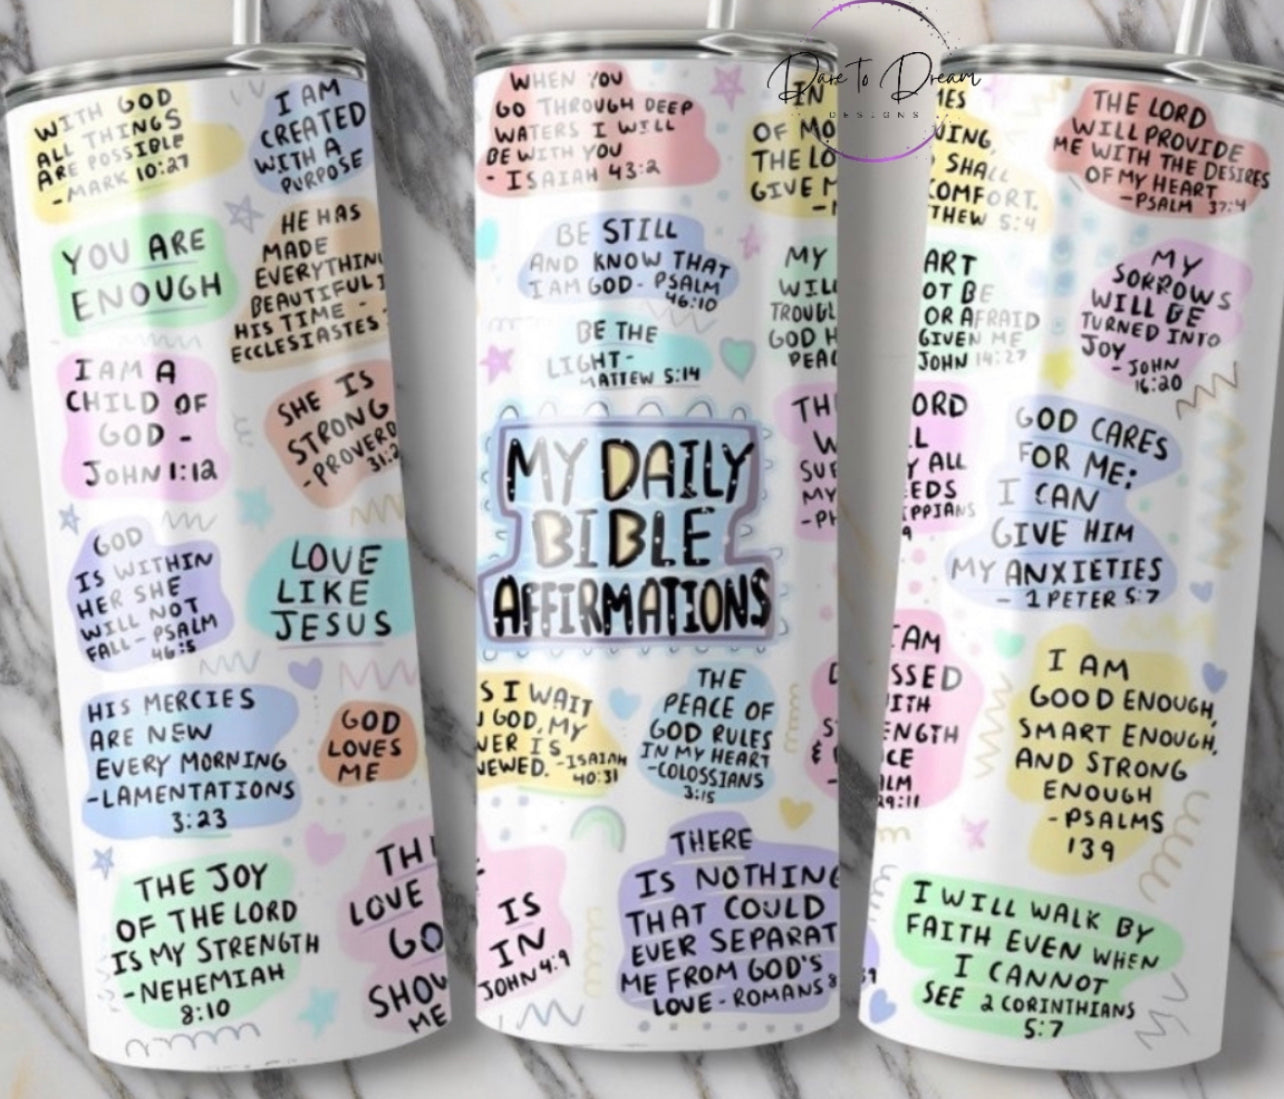 WITH GOD
ALL THINGS
ARE POSSIBLE
- MARK 10:27
I AM
CREATED
WITH A
PURPOSE
YOU ARE
ENOUGH
HE HAS
MADE
EVERYTHIN
BEAUTIFUL I
HIS TIME -
ECCLESIASTES
I AM A
CHILD OF
GOD -
JOHN 1:12
SHE IS
STRONG
- PROVERB
31:2
GOD
IS WITHIN
HER SHE
WILL NOT
FALL - PSALM
46:5
LOVE
LIKE
JESUS
HIS MERCIES
ARE NEW
EVERY MORNING
- LAMENTATIONS
3:23
GOD
LOVES
ME
THE JOY
OF THE LORD
IS MY STRENGTH
- NEHEMIAH
8:10
TH
LOVE
GO
SHOW
ME
WHEN YOU
GO THROUGH DEEP
WATERS I WILL
BE WITH YOU
- ISAIAH 43:2
IN
OF MO
THE LO
GIVE M
BE STILL
AND KNOW THAT
I AM GOD - PSALM
46:10
MY
WILL
TROUBL
GOD H
PEAC
BE THE
LIGHT -
MATTEW 5:14
TH
W
SUP
MY
- PH
MY DAILY
BIBLE
AFFIRMATIONS
S I WAIT
GOD, MY
WER IS
NEWED. - ISAIAH
40:31
THE
PEACE OF
GOD RULES
IN MY HEART
- COLOSSIANS
3:15
IS
IN
JOHN 4:9
THERE
IS NOTHING
THAT COULD
EVER SEPARAT
ME FROM GOD'S
LOVE - ROMANS 8
Dare To Dream
DESIGNS
MES
VING,
SHALL
COMFORT.
THEW 5:4
THE LORD
WILL PROVIDE
ME WITH THE DESIRES
OF MY HEART
- PSALM 37:4
ART
OT BE
OR AFRAID
GIVEN ME
JOHN 14:27
MY
SORROWS
WILL BE
TURNED INTO
JOY
- JOHN
16:20
ORD
L
Y ALL
EEDS
IPPIANS
9
GOD CARES
FOR ME:
I CAN
GIVE HIM
MY ANXIETIES
- 1 PETER 5:7
I AM
SSED
ITH
ENGTH
CE
ALM
29:11
I AM
GOOD ENOUGH,
SMART ENOUGH,
AND STRONG
ENOUGH
- PSALMS
139
I WILL WALK BY
FAITH EVEN WHEN
I CANNOT
SEE 2 CORINTHIANS
5:7